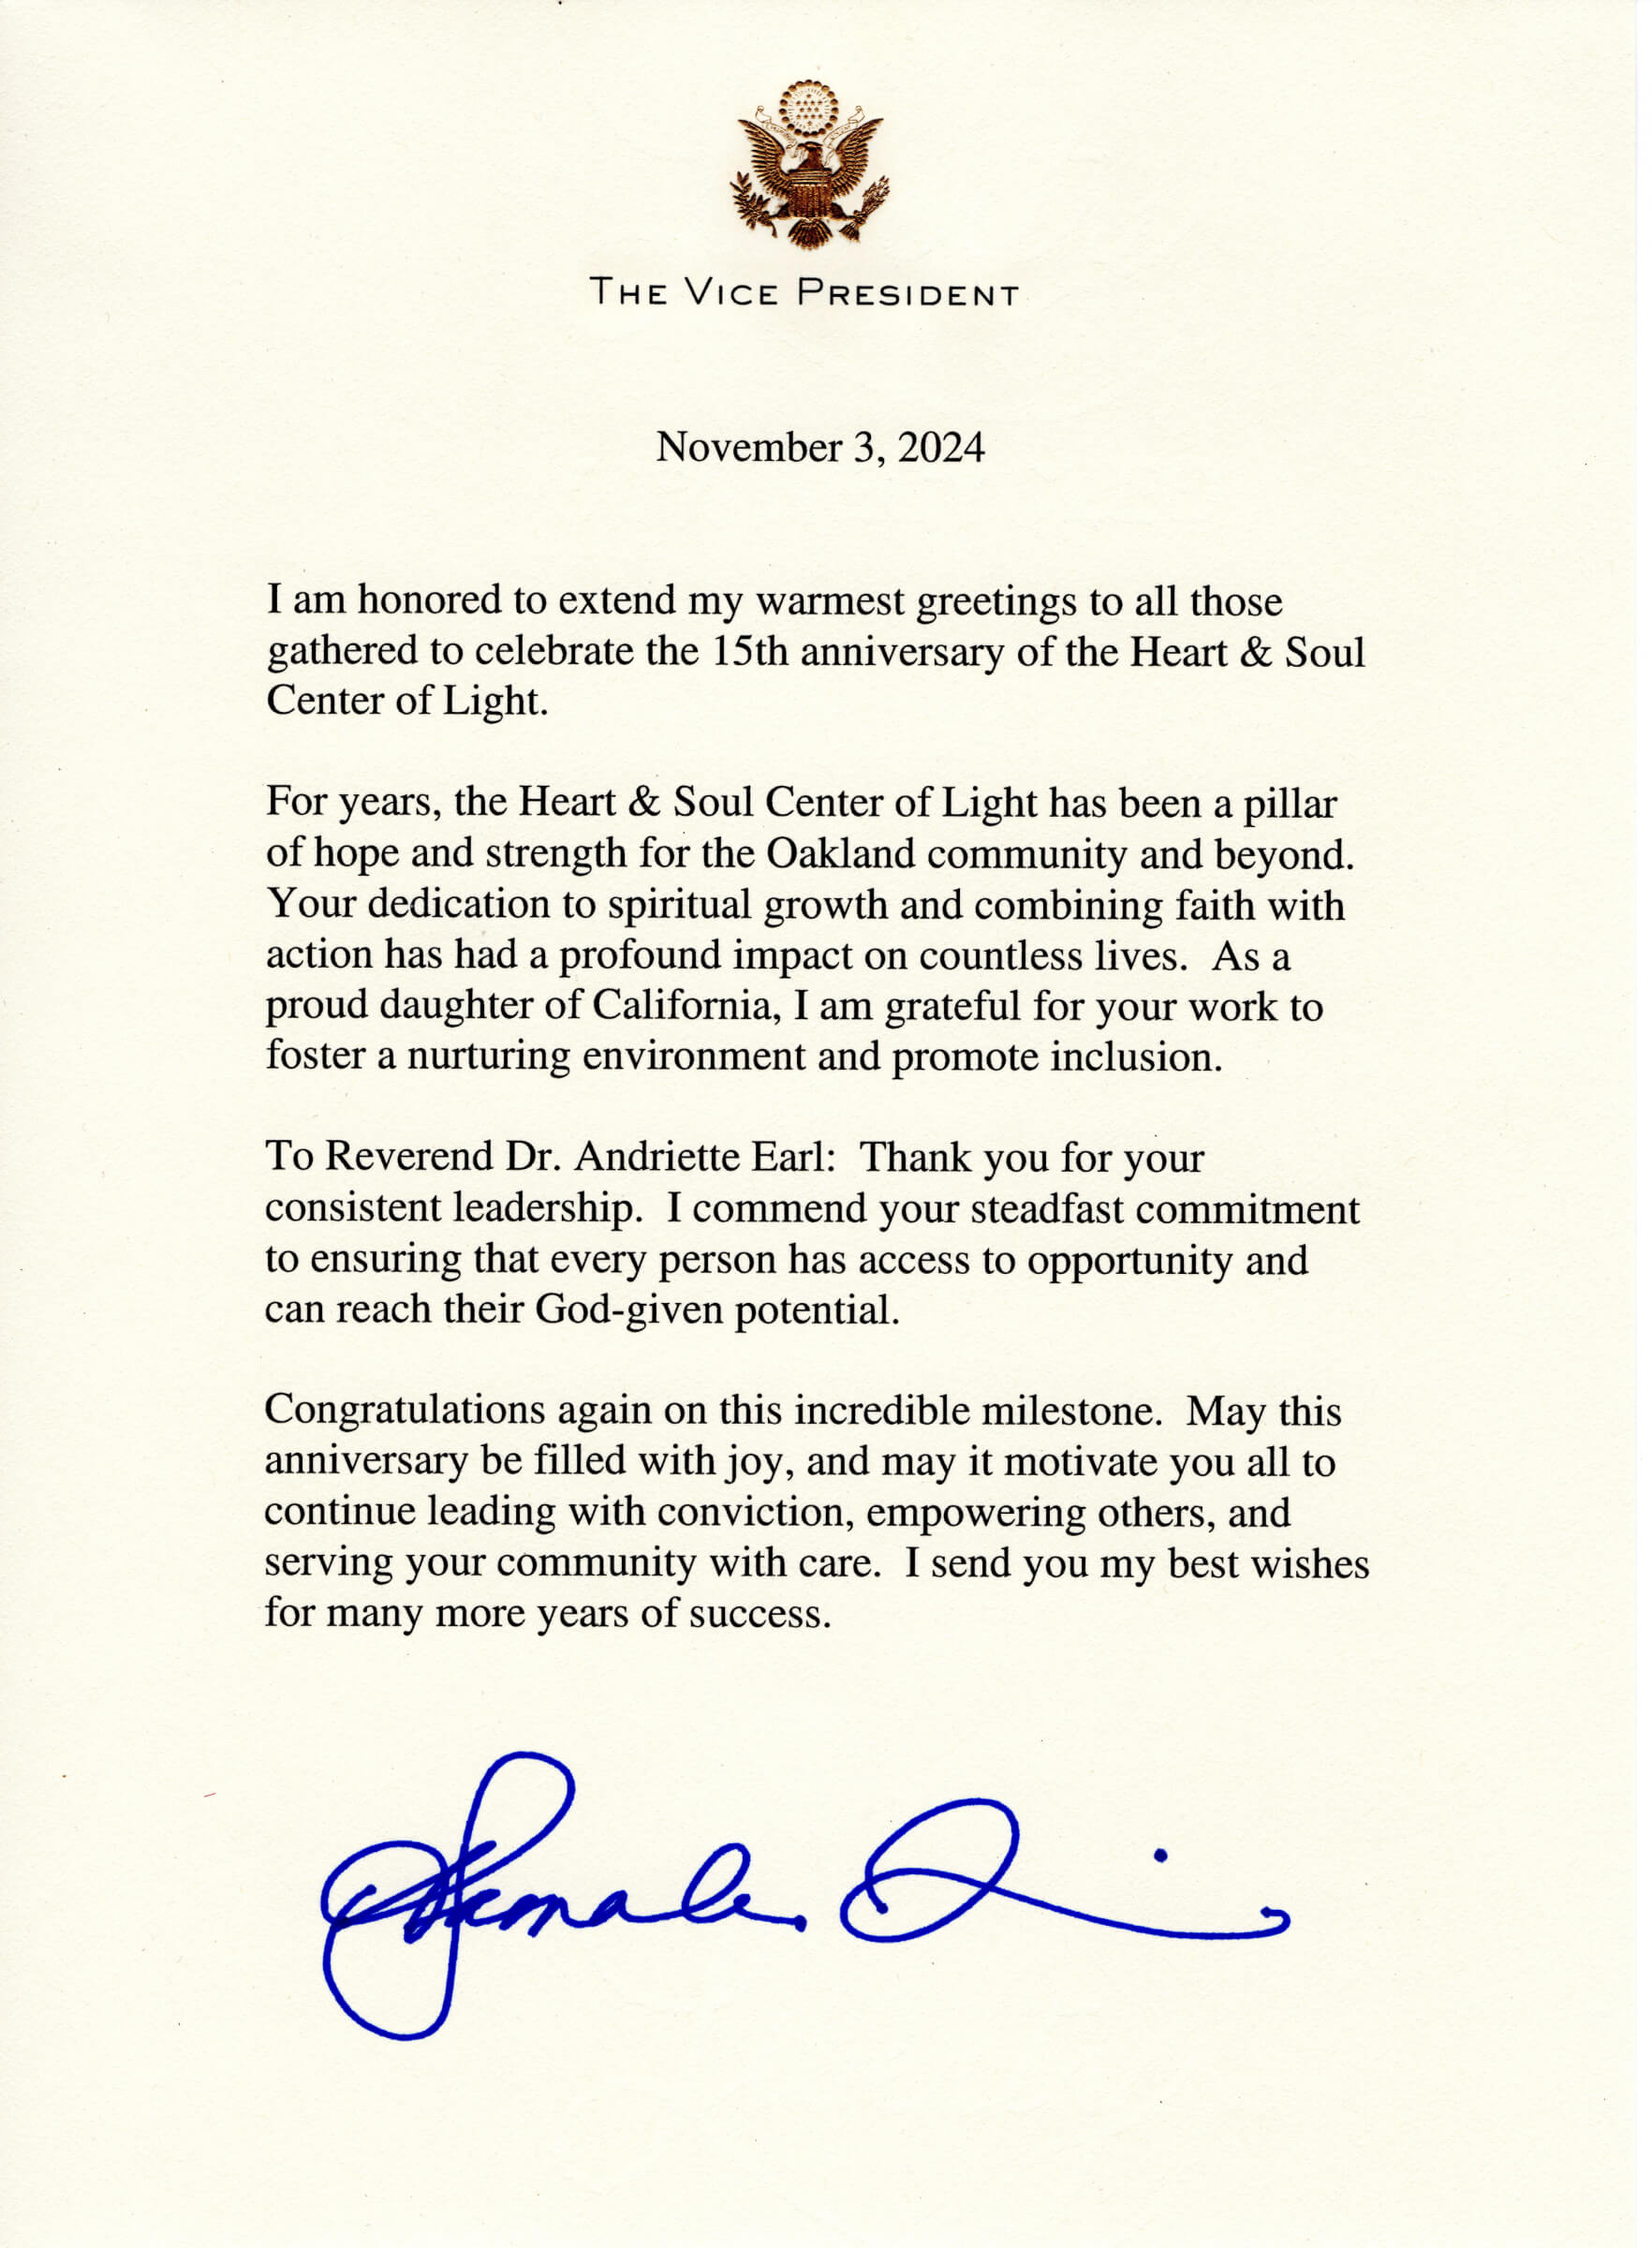 THE VICE PRESIDENT
November 3, 2024
I am honored to extend my warmest greetings to all those
gathered to celebrate the 15th anniversary of the Heart & Soul
Center of Light.
For years, the Heart & Soul Center of Light has been a pillar
of hope and strength for the Oakland community and beyond.
Your dedication to spiritual growth and combining faith with
action has had a profound impact on countless lives.  As a
proud daughter of California, I am grateful for your work to
foster a nurturing environment and promote inclusion.
To Reverend Dr. Andriette Earl:  Thank you for your
consistent leadership.  I commend your steadfast commitment
to ensuring that every person has access to opportunity and
can reach their God-given potential.
Congratulations again on this incredible milestone.  May this
anniversary be filled with joy, and may it motivate you all to
continue leading with conviction, empowering others, and
serving your community with care.  I send you my best wishes
for many more years of success.